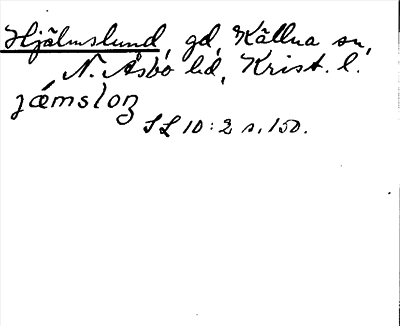 Hjälmslund, gd, Källna sn,
N. Åsbo hd, Krist. l.
jǽmsloŋ
SL 10:2 s. 150.